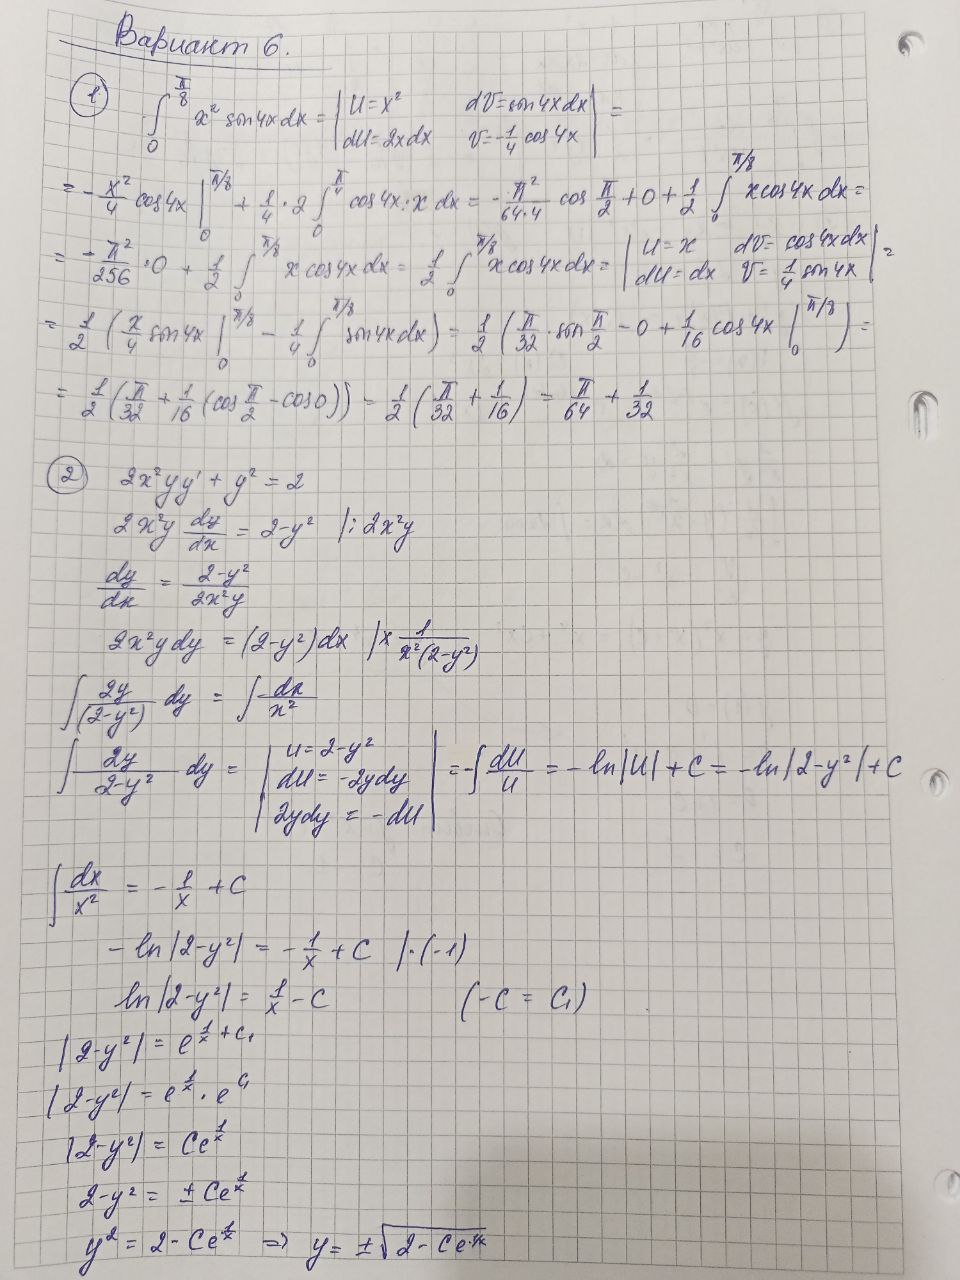 Вариант 6.
① ∫₀^{π/8} x² sin4x dx = | U = x² dV = sin4x dx | =
| dU = 2x dx V = -1/4 cos4x |
= - x²/4 cos4x |₀^{π/8} + 1/4 · 2 ∫₀^{π/4} cos4x · x dx = - π²/(64·4) cos π/2 + 0 + 1/2 ∫₀^{π/8} x cos4x dx =
= - π²/256 · 0 + 1/2 ∫₀^{π/8} x cos4x dx = 1/2 ∫₀^{π/8} x cos4x dx = | U = x dV = cos4x dx | =
| dU = dx V = 1/4 sin4x |
= 1/2 ( x/4 sin4x |₀^{π/8} - 1/4 ∫₀^{π/8} sin4x dx ) = 1/2 ( π/32 · sin π/2 - 0 + 1/16 cos4x |₀^{π/8} ) =
= 1/2 ( π/32 + 1/16 (cos π/2 - cos0)) = 1/2 ( π/32 + 1/16 ) = π/64 + 1/32
② 2x²yy' + y² = 2
2x²y dy/dx = 2-y² |: 2x²y
dy/dx = (2-y²)/(2x²y)
2x²y dy = (2-y²)dx |× 1/(x²(2-y²))
∫ 2y/(2-y²) dy = ∫ dx/x²
∫ 2y/(2-y²) dy = | U = 2-y² | = -∫ dU/U = -ln|U| + C = -ln|2-y²| + C
| dU = -2y dy |
| 2y dy = -dU |
∫ dx/x² = - 1/x + C
-ln|2-y²| = - 1/x + C |·(-1)
ln|2-y²| = 1/x - C (-C = C₁)
|2-y²| = e^{1/x + C₁}
|2-y²| = e^{1/x} · e^{C₁}
|2-y²| = Ce^{1/x}
2-y² = ± Ce^{1/x}
y² = 2 - Ce^{1/x} => y = ±√(2 - Ce^{1/x})